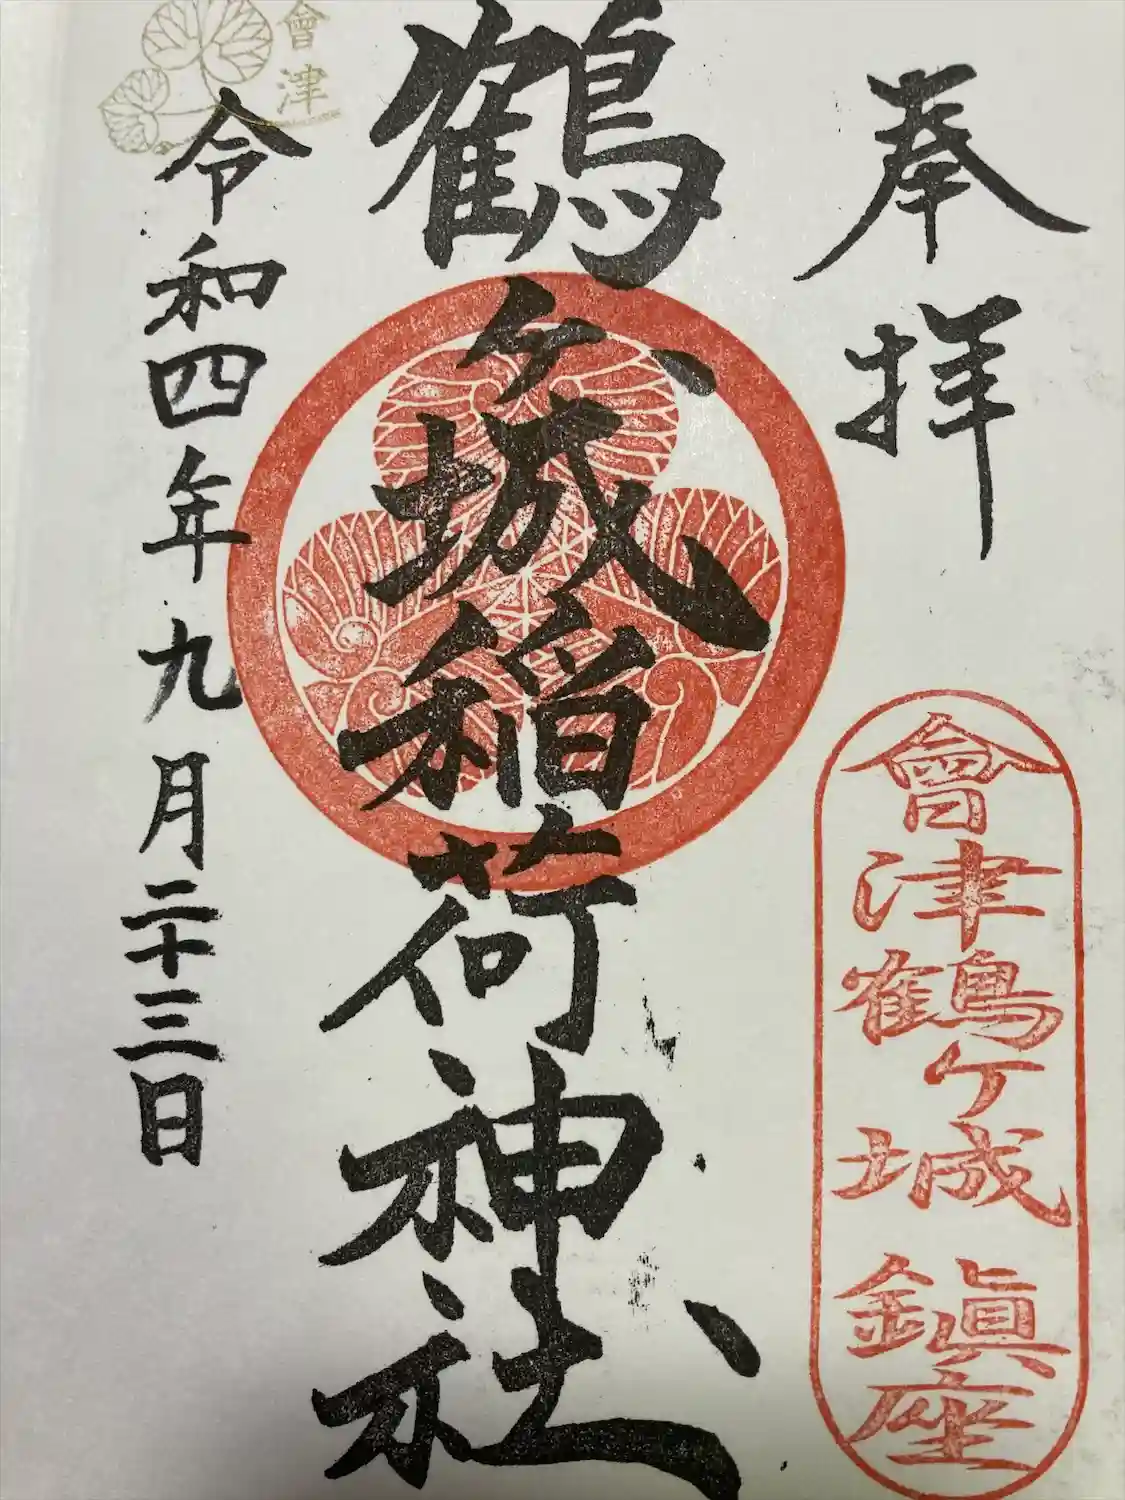 奉拝
會津鶴ケ城鎮座
鶴ヶ城稲荷神社
令和四年九月二十三日
會津